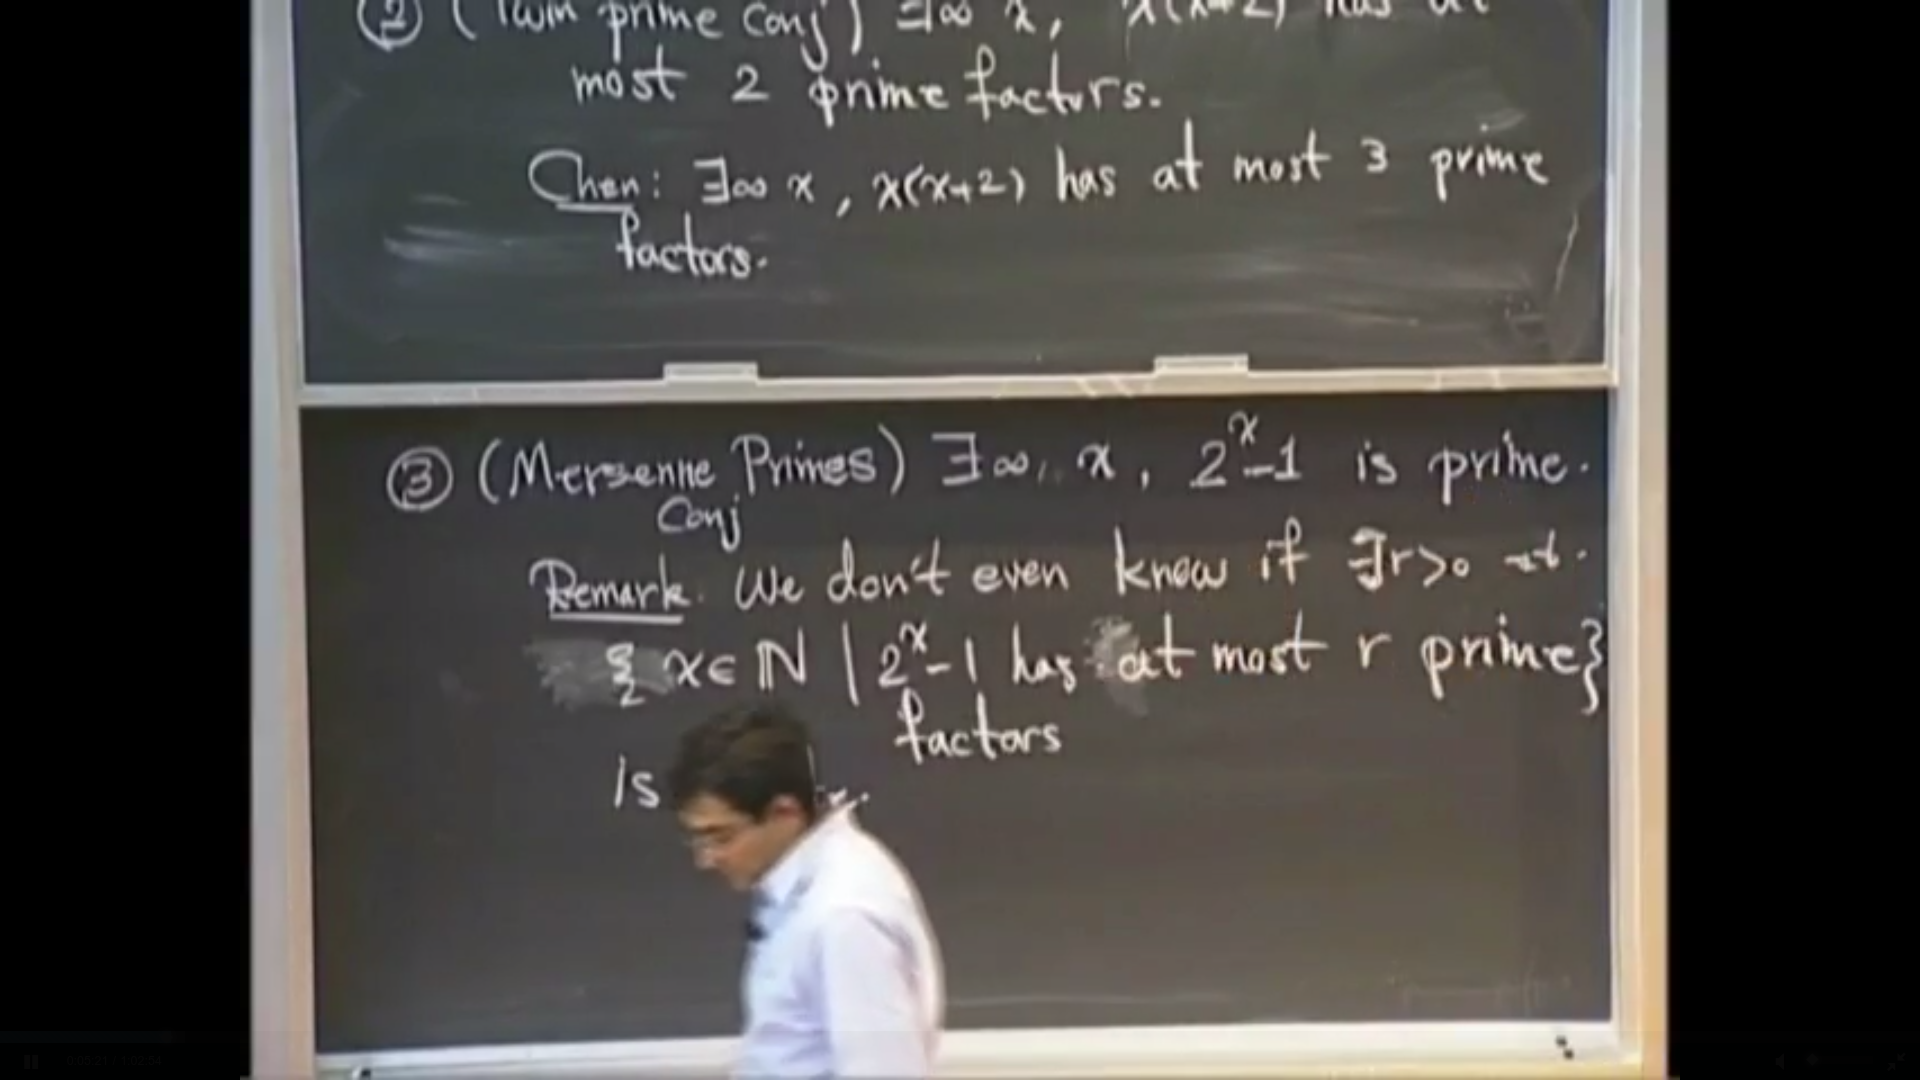 ② (Twin prime Conj) ∃∞ x, x(x+2) has at
most 2 prime factors.
Chen: ∃∞ x, x(x+2) has at most 3 prime
factors.
③ (Mersenne Primes) ∃∞ x, 2^x-1 is prime.
Conj
Remark. We don't even know if ∃r>0 st.
{x∈ℕ | 2^x-1 has at most r prime}
factors
is